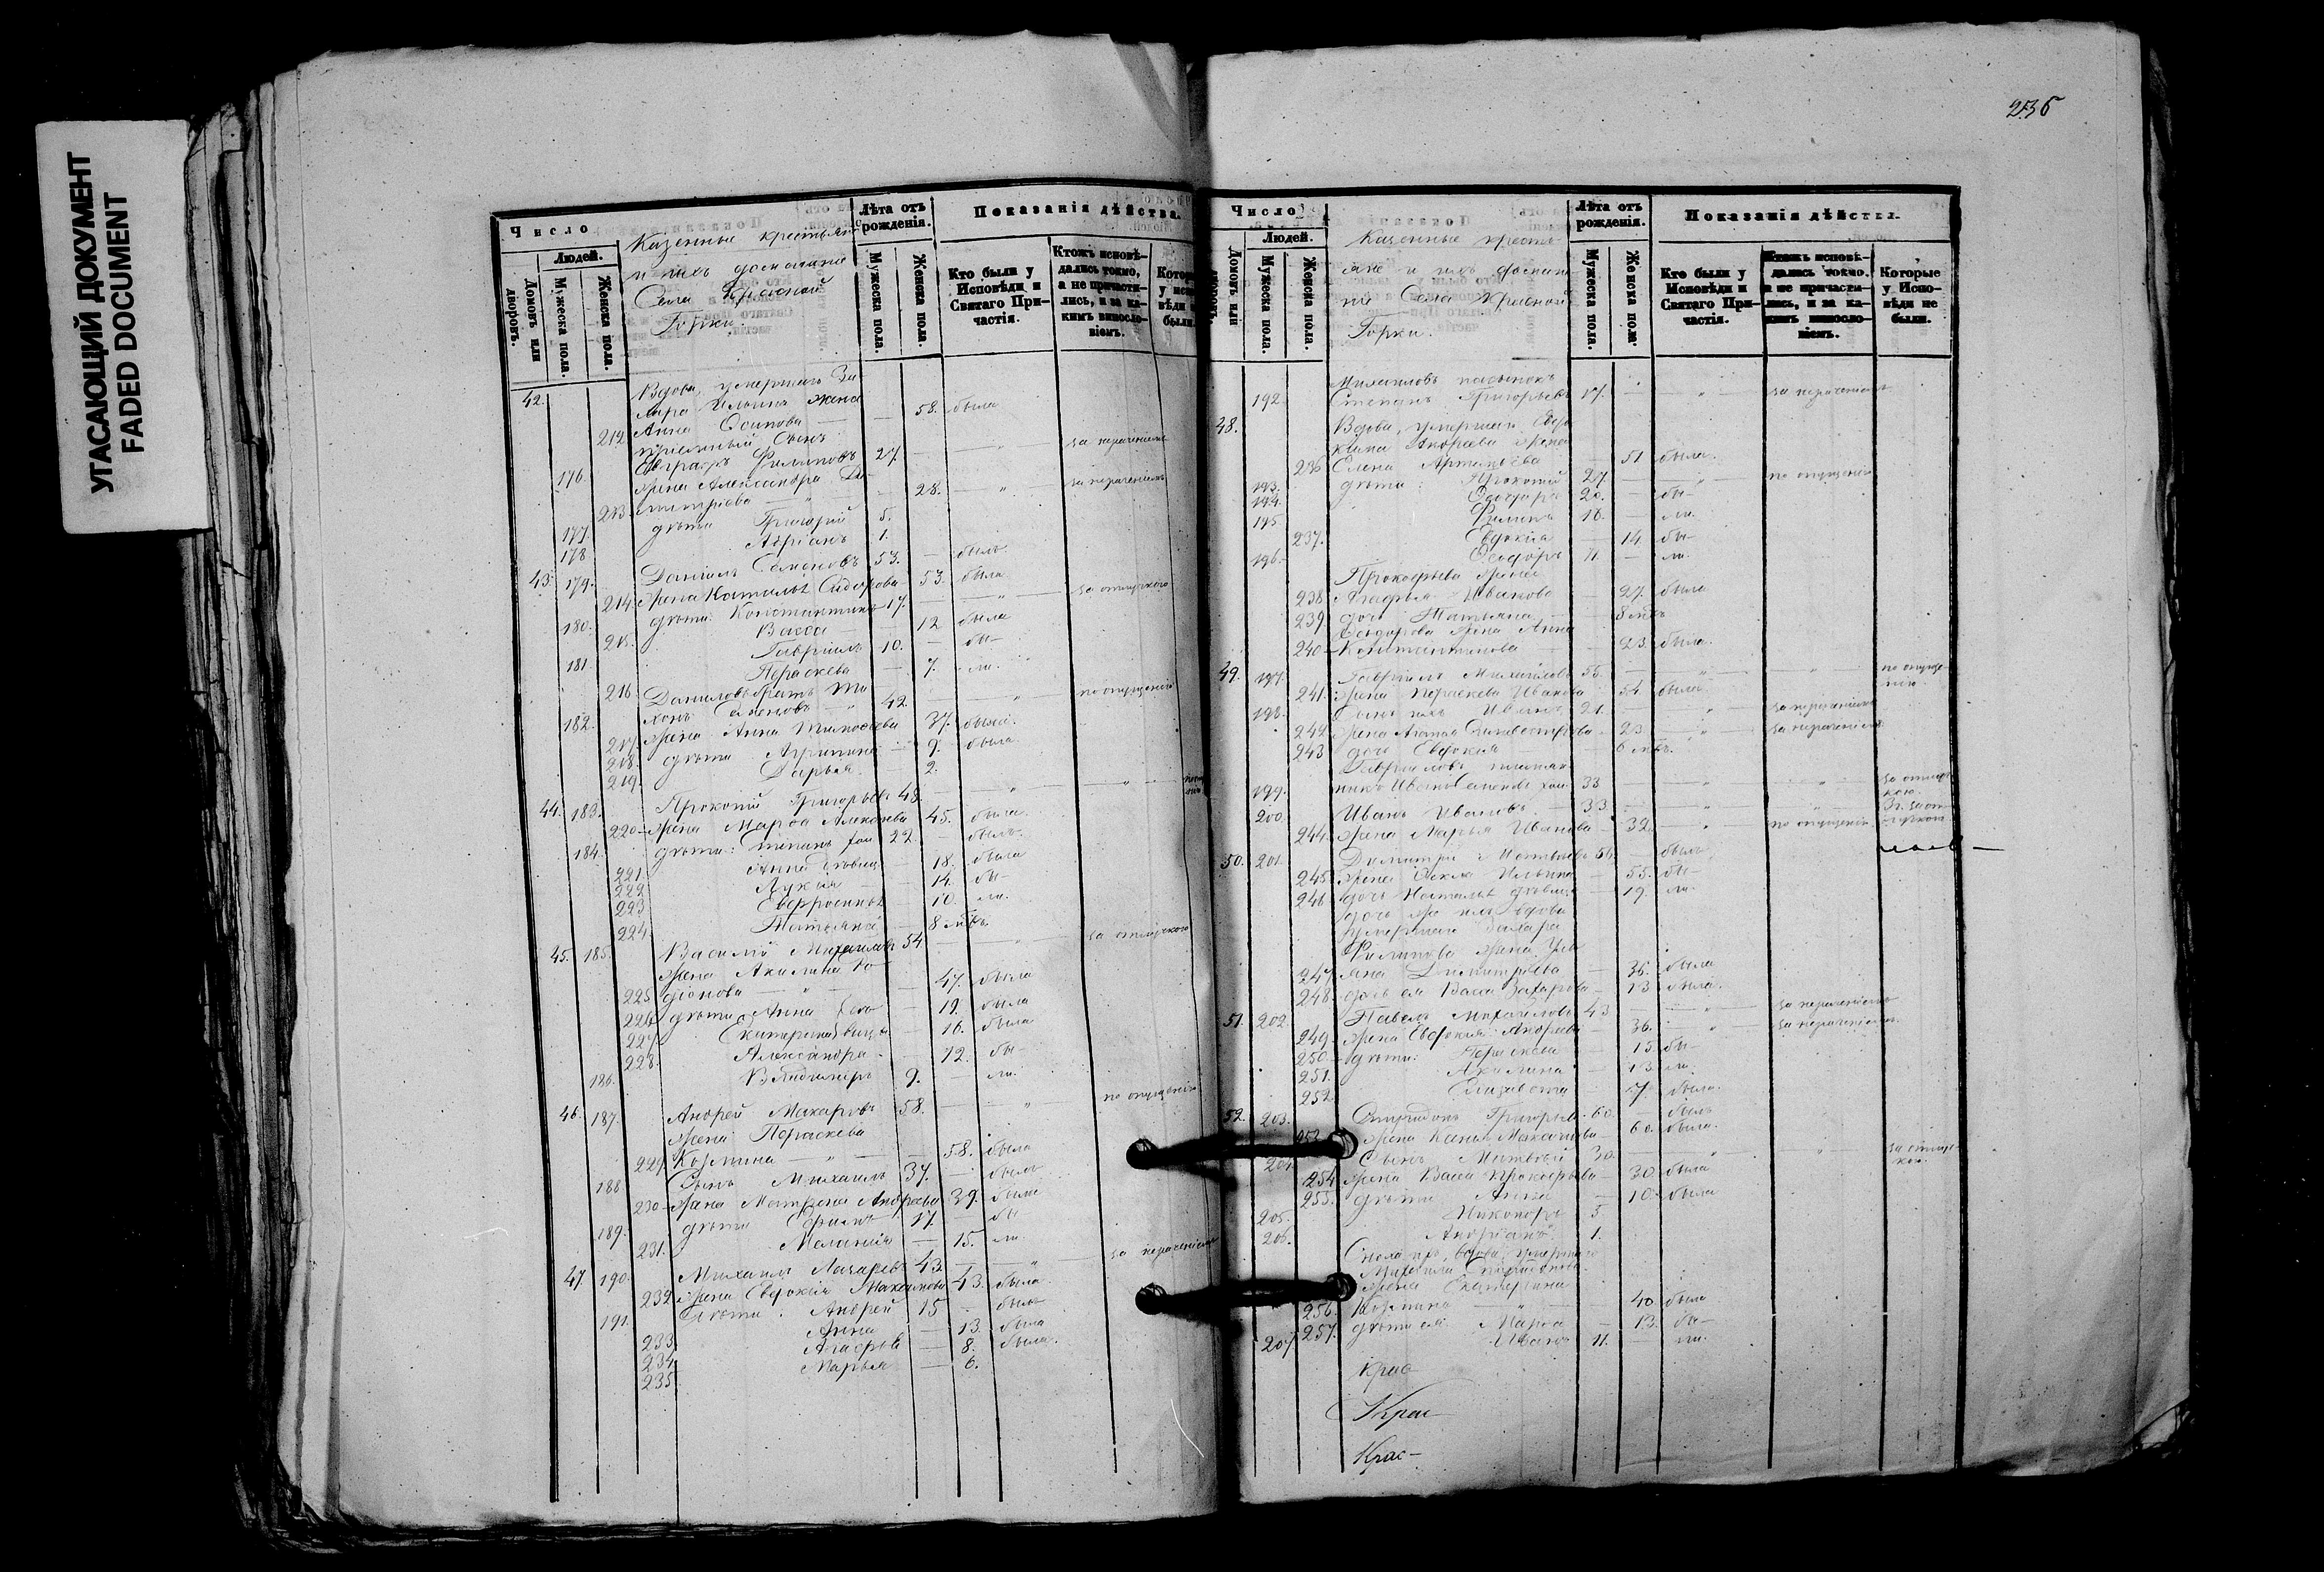 УГАСАЮЩИЙ ДОКУМЕНТ
FADED DOCUMENT
235
Число
Людей.
Домовъ или дворовъ.
Мужеска пола.
Женска пола.
Казенные крестьяне
и ихъ домашніе
Села Красной
Горки.
Лѣта отъ рожденія.
Мужеска пола.
Женска пола.
Показанія дѣйства.
Кто были у Исповѣди и Святаго Причастія.
Ктожъ исповѣдались токмо, а не причастились, и за какимъ винословіемъ.
42. Вдова, умершаго За
хара Ильина жена
212 Анна Осипова — 58. была
пріемный сынъ
176. Евграфъ Филиповъ 27. — " за нераченіемъ
жена Александра Ди-
213 митріева — " — 28. — " за нераченіемъ
177. дѣти Григорій 5.
178 Адріанъ 1.
43. 179. Даніилъ Семеновъ 53. — былъ
214 жена Наталья Сидорова 53. была
180. дѣти: Константинъ 17. — " за отлучкою
215. Васса — 12 была
181. Гавріилъ 10. — бы-
216 Параскева — 7. ли.
Даниловъ братъ Ти
182. хонъ Семеновъ — " 42. — " по опущенію
217 жена Анна Тимофеева 37. была.
218. дѣти Агрипина — 9. была.
219. Дарья. — 2.
44. 183. Прокопій Григорьевъ 48. — " — "
220 жена Марѳа Алексеева 45. была.
184. дѣти: Степанъ хол. 22. — былъ.
221. Анна дѣвица 18. была
222 Лукія — 14. бы-
223 Евфросинья 10. ли.
224 Татьяна — 8 мѣс.
45. 185. Василій Михайловъ 54. — " за отлучкою
жена Акилина Ро-
225 діонова — " — 47. была
226 дѣти Анна 19. была
227 Екатерина 16. была
228. Александра — 12. бы-
186. Владимиръ 9. — ли.
46. 187. Андрей Макаровъ 58. — " по опущенію
жена Параскева
229 Козмина — " — 58. была
188 Сынъ Михаилъ 37. былъ
230 жена Матрена Андреева 39. была
189. дѣти Ефимъ 17. — бы
231. Меланія — 15. ли.
47. 190. Михаилъ Лазаревъ 43. — " за нераченіемъ
232 жена Евдокія Максимова 43. была
191. дѣти: Андрей 15 — былъ
233 Анна — 13. была
234 Агафья — 8. была.
235 Марья — 6.
Число
Людей.
Домовъ или
Мужеска пола.
Женска пола.
Казенные кресть-
яне и ихъ домаш
ніе Села Красной
Горки.
Лѣта отъ рожденія.
Мужеска пола.
Женска пола.
Показанія дѣйства.
Кто были у Исповѣди и Святаго Причастія.
Ктожъ исповѣдались токмо, а не причастились, и за какимъ винословіемъ.
Которые у Исповѣди не были.
Михаиловъ пасынокъ
192 Степанъ Григорьевъ 17. — " за нераченіемъ
48. Вдова, умершаго
Андреева жена
236 Елена Артемьева — 51 была.
193. дѣти: Прокопій 27. — " по опущенію
194. Ѳеодоръ 20. — бы-
195 Филипъ 18. — ли.
237. Евдокія — 14 бы-
196. Ѳеодоръ 11. — ли.
Прокофьева жена
238 Агафья Иванова — 27. была
239 дочь Татьяна — 8 мѣс.
Ѳеодорова жена Анна
240 Константинова — 23. была.
49. 197. Гавріилъ Михайловъ 55. — " — " по опуще-
нію.
241. жена Параскева Иванова 54. была.
198. Сынъ ихъ Иванъ 21. — " за нераченіемъ
242 жена — 23 — " за нераченіемъ
243 дочь Евдокія — 6 мѣс.
Гавріиловъ племян-
199. никъ Иванъ Семеновъ хол. 33 — " — " за отлуч-
кою.
200 Иванъ Ивановъ 33. — " — " за от-
лучкою
244. жена Марья Иванова — 32. — " по опущенію.
50. 201. Димитрій Матвѣевъ былъ
245 жена Ѳекла Ильина — 55. бы-
246 дочь Наталья дѣвица — 19. ли.
дочь же ихъ вдова
умершаго Захара
Филипова жена Уль-
247 яна Димитріева — 36. была
248. дочь ея Васса Захарова — 13 была.
51. 202. Павелъ Михайловъ 43 — " за нераченіемъ
249 жена Евдокія Андреева 36. — " за нераченіемъ.
250 дѣти: Параскева — 15. бы-
251. Акилина — 13. ли.
252. Елизавета — 7. была.
52. 203. Спиридонъ Григорьевъ 60. — былъ
253 жена Ксенія 60. была.
204 Сынъ Матвѣй 30. — " — " за отлуч-
кою.
254 жена Васса Прокофьева — 30. была
255. дѣти Анна — 10. была
205. Никоноръ 5
206. Андріанъ 1.
Сноха ихъ, вдова, умершаго
Михаила Спиридонова
жена Екатерина
256. Козмина — " — 40 была
257. дѣти ея Марѳа — 13. бы-
207. Иванъ 11. — ли.
Крас
Крас
Крас-